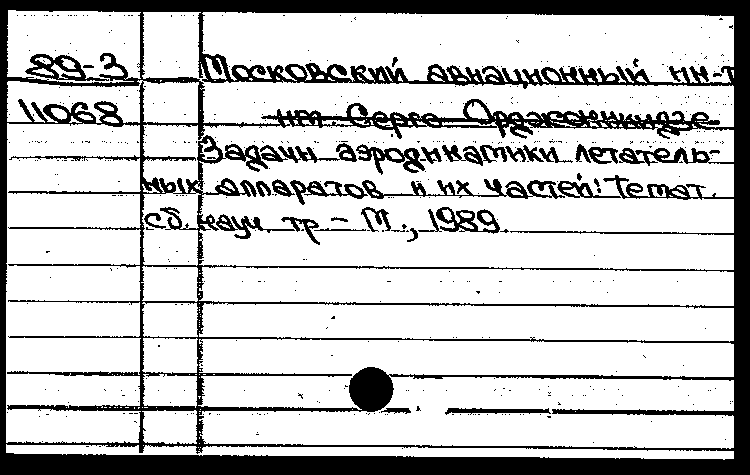 89-3 Московский авиационный ин-т
11068 им. Серго Орджоникидзе
Задачи аэродинамики летатель-
ных аппаратов и их частей: Темат.
сб. науч. тр – М., 1989.